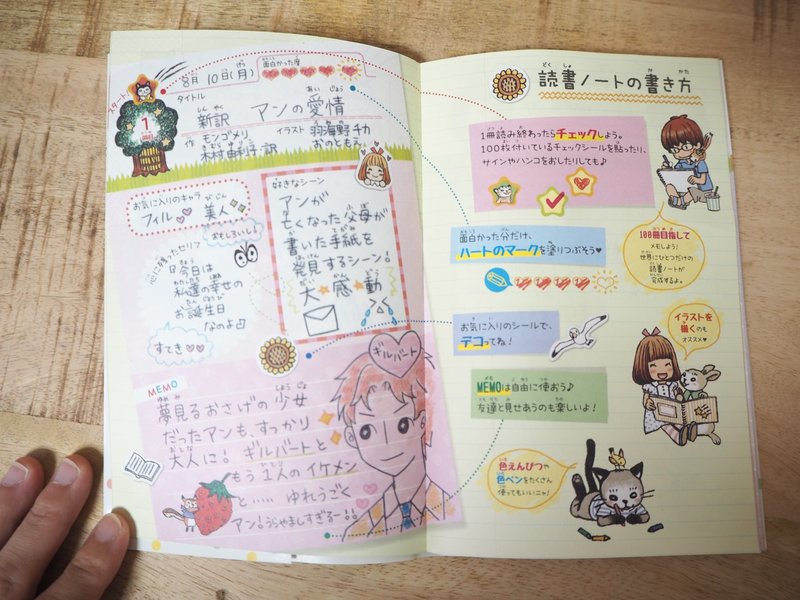 スタート
1
8月10日(月)
面白かった度
タイトル
新訳 アンの愛情
作 モンゴメリ
木村由利子・訳
イラスト 羽海野チカ
おのともえ
お気に入りのキャラ
フィル♡ 美人
おもしろいし♪
心に残ったセリフ
『今日は
私達の幸せの
お誕生日
なのよ』
すてき♡♡
好きなシーン
アンが
亡くなった父母が
書いた手紙を
発見するシーン!
大★感★動
ギルバート
MEMO
夢見るおさげの少女
だったアンも、すっかり
大人に! ギルバートと
もう1人のイケメン
と…… ゆれうごく
アン!うらやましすぎるー!!
読書ノートの書き方
1冊読み終わったらチェックしよう。
100枚付いているチェックシールを貼ったり、
サインやハンコをおしたりしても♪
面白かった分だけ、
ハートのマークを塗りつぶそう♥
お気に入りのシールで、
デコってね!
MEMOは自由に使おう♪
友達と見せあうのも楽しいよ!
100冊目指して
メモしよう!
世界にひとつだけの
読書ノートが
完成するよ。
イラストを
描くのも
オススメ♥
色えんぴつや
色ペンをたくさん
使ってもいいニャ!